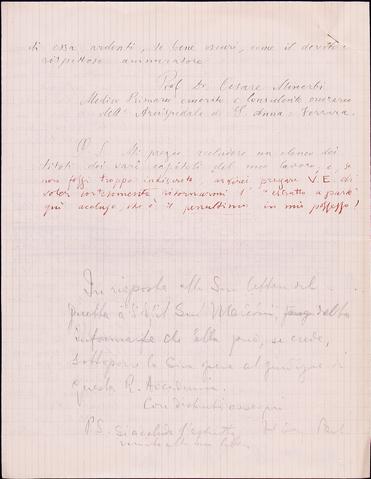 di essa ardenti, se bene oscuri, come il devoto e
rispettoso ammiratore
Prof. Dr. Cesare Minerbi
Medico Primario emerito e Consulente onorario
dell' Arcispedale di S. Anna - Ferrara.
P. S. Mi pregio accludere un elenco dei
titoli dei varii capitoli del mio lavoro e, se
non fossi troppo indiscreto ardirei pregare V. E. di
voler cortesemente ritornarmi l' "estratto a parte"
qui accluso, che è il penultimo in mio possesso!
In risposta alla Sua lettera del
diretta a S. E. il Sen. Marconi,
informarla che Ella può, se crede,
sottoporre la Sua opera al giudizio di
questa R. Accademia.
Con distinti ossequi
P.S. Si acclude l'estratto